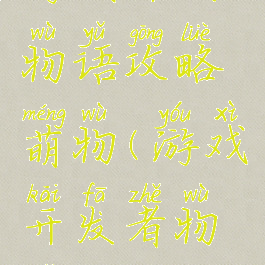 wù yǔ gōng lüè
物语攻略
méng wù yóu xì
萌物(游戏
kāi fā zhě wù
开发者物